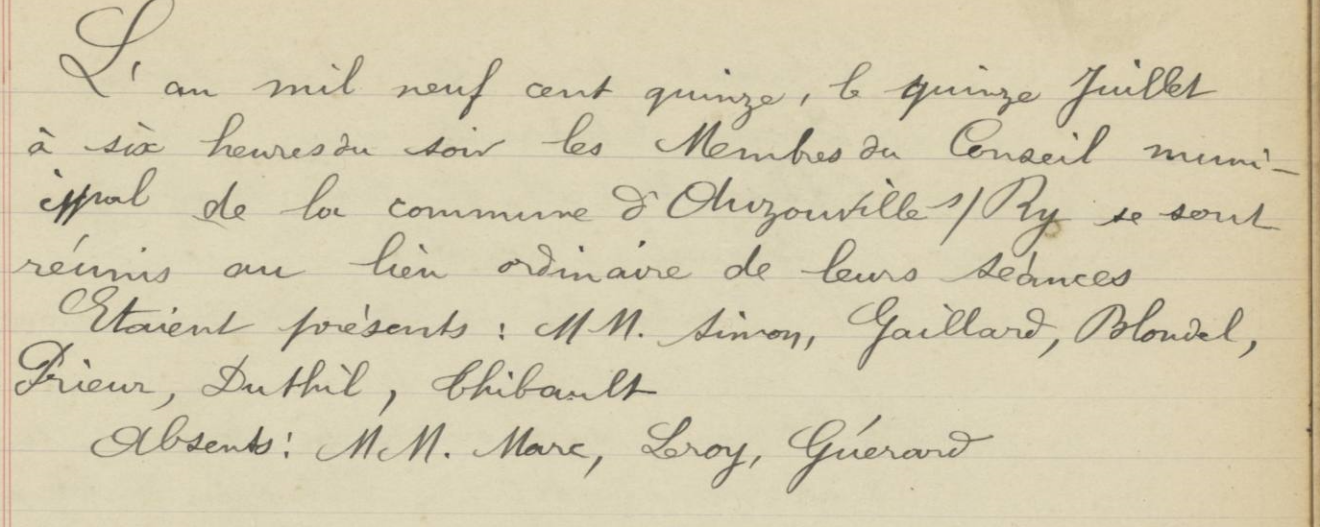 L'an mil neuf cent quinze, le quinze Juillet
à six heures du soir les Membres du Conseil muni-
cipal de la commune d'Auzouville s/ Ry se sont
réunis au lieu ordinaire de leurs séances
Etaient présents : MM. Simon, Gaillard, Blondel,
Prieur, Duthil, Thibault
Absents : MM. Marc, Leroy, Guérard